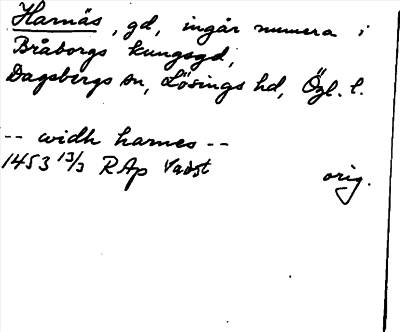 Harnäs, gd, ingår numera i
Bråborgs kungsgd,
Dagsbergs sn, Lösings hd, Ögl. l.
-- widh harnes --
1453 13/3 RAp Vadst orig.